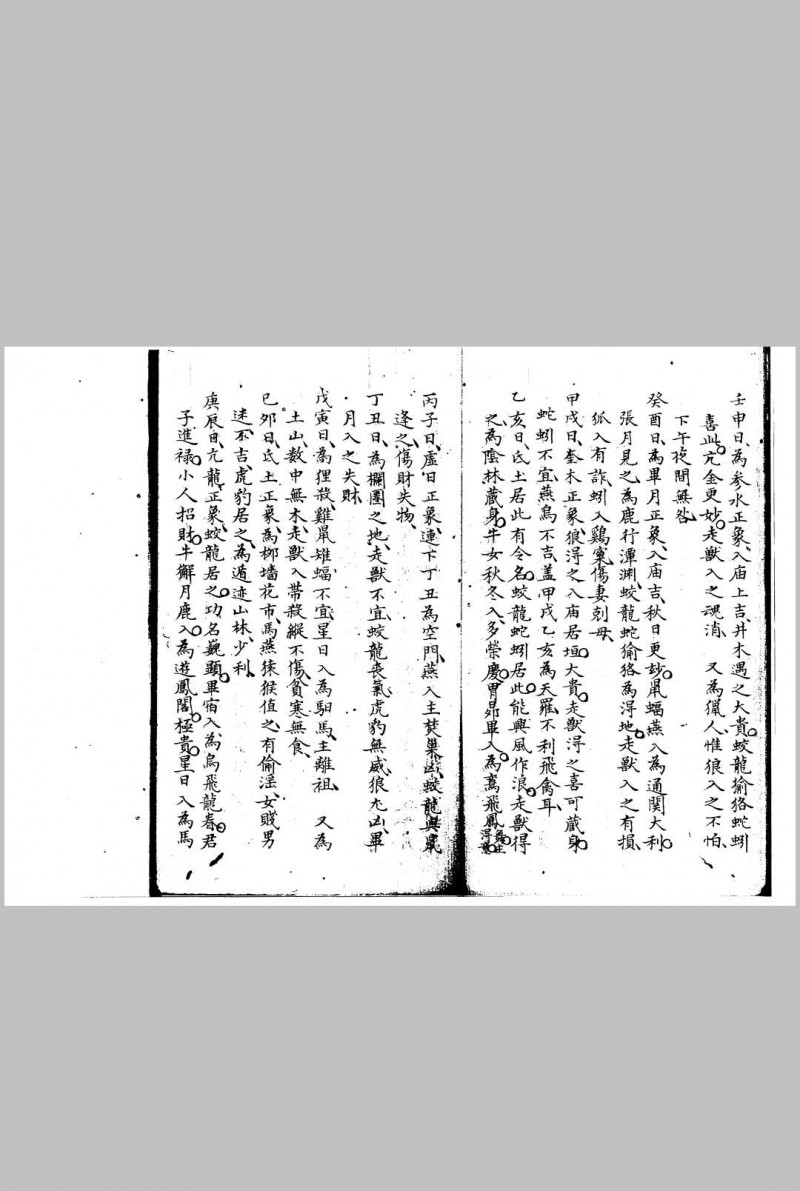 壬申日、為参水正象、入庙上吉、井木遇之大貴。蛟龍狳狢蛇蚓
喜此。亢金更妙。走獸入之魂消　又為獵人、惟狼入之不怕、
下午夜間無咎
癸酉日、為畢月正象、入庙吉、秋日更妙。鼠蝠燕入為通関大利。
張月見之、為鹿行潭渊、蛟龍蛇狳狢為淂地。走獸入之有損、
狐入有詐、蚓入鷄窠、傷妻剋母、
甲戌日、奎木正象、狼淂之入庙居垣。大貴。走獸淂之喜可藏身。
蛇蚓不宜、燕烏不吉、盖甲戌乙亥為天羅、不利飛禽耳、
乙亥日、氐土居此有令名。蛟龍蛇蚓居此、能興風作浪。走獸得
之為陰林藏身。牛女秋冬入、多荣慶。胃昴畢入。為高飛鳳
丙子日、虛日正象、連下丁丑為空門、燕入主焚巢凶、蛟龍與鼠
逢之、傷財失物、
丁丑日、為欄圈之地、走獸不宜、蛟龍喪氣、虎豹無威、狼尤凶、畢
月入之失財
戊寅日、為狸殺、雞鼠雉蝠不宜、星日入為馹馬、主離祖　又為
土山、数中無木、走獸入帶殺、縱不傷、貧寒無食、
已夘日、氐土正象、為柳墙花市、馬燕猿猴值之、有偷淫、女賤男
迷不吉、虎豹居之、為遁迹山林、少利
庚辰日、亢龍正象、蛟龍居之。功名巍顕。畢宿入為烏飛龍春。君
子進禄。小人招財。牛獬月鹿入。為遊鳳閣。極貴。星日入為馬